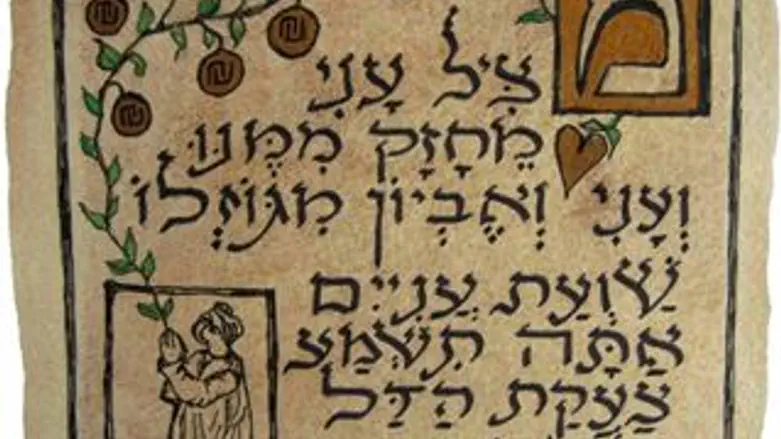 מ
צִּיל עָנִי
מֵחָזָק מִמֶּנּוּ
וְעָנִי וְאֶבְיוֹן מִגּוֹזְלוֹ
שַׁוְעַת עֲנִיִּים
אַתָּה תִשְׁמַע
צַעֲקַת הַדַּל